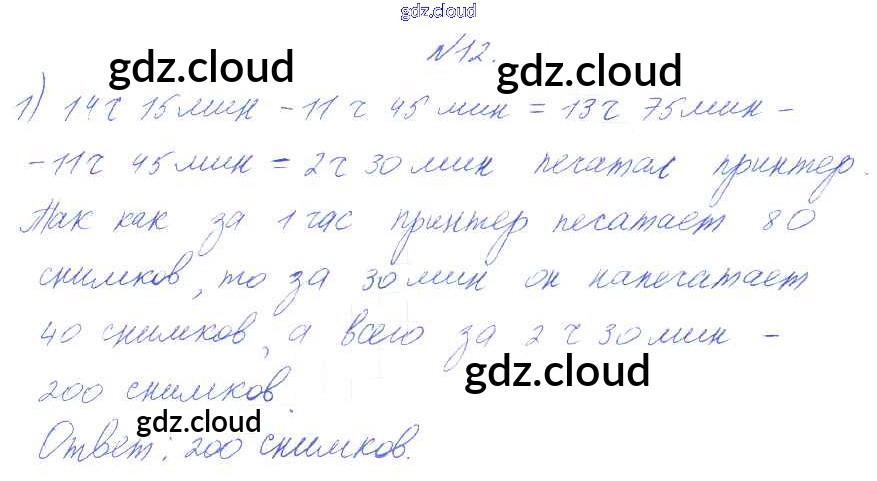 gdz.cloud
№12.
gdz.cloud
gdz.cloud
1) 14 ч 15 мин - 11 ч 45 мин = 13 ч 75 мин -
- 11 ч 45 мин = 2 ч 30 мин печатал принтер.
Так как за 1 час принтер печатает 80
снимков, то за 30 мин он напечатает
40 снимков, а всего за 2 ч 30 мин -
gdz.cloud
200 снимков.
gdz.cloud
Ответ: 200 снимков.